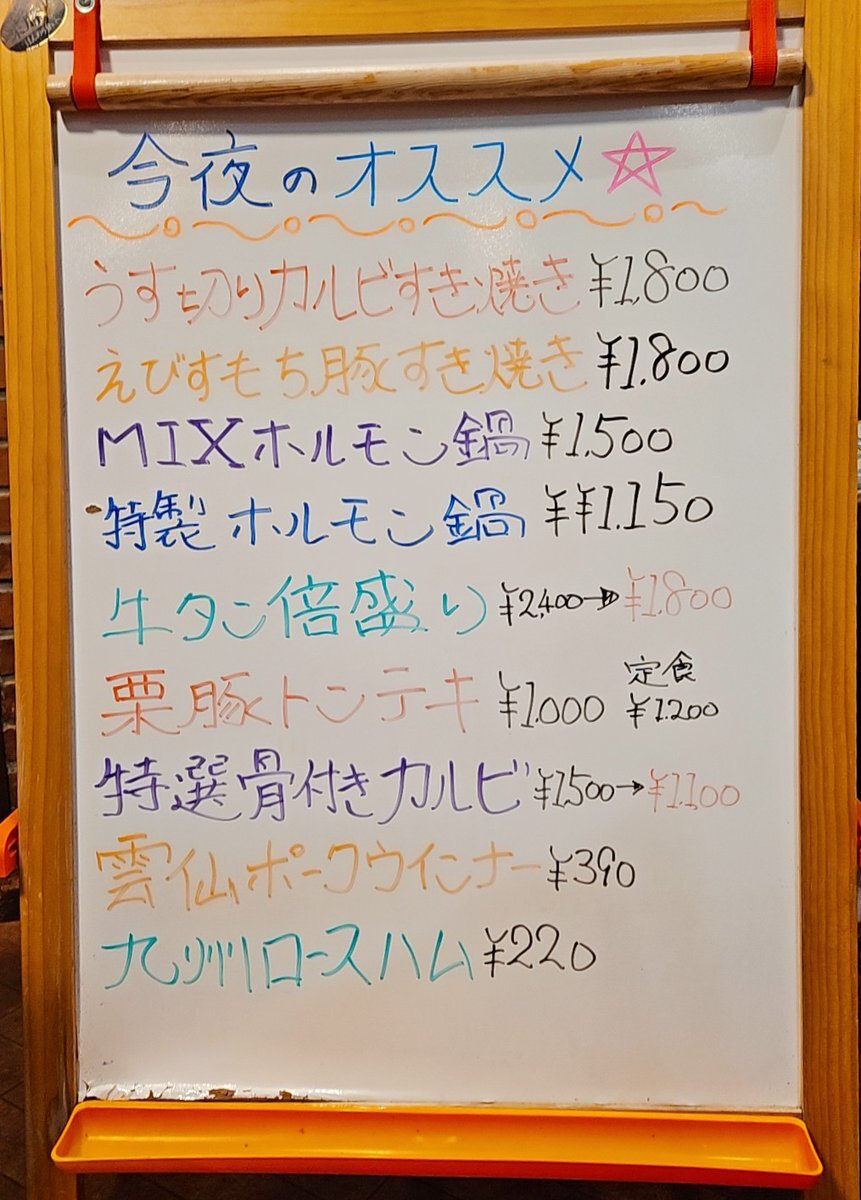 今夜のオススメ☆
うす切りカルビすき焼き ¥1,800
えびすもち豚すき焼き ¥1,800
MIXホルモン鍋 ¥1,500
特製ホルモン鍋 ¥¥1,150
牛タン倍盛り ¥2,400→¥1,800
栗豚トンテキ ¥1,000 定食 ¥1,200
特選骨付きカルビ ¥1,500→¥1,100
雲仙ポークウインナー ¥390
九州ロースハム ¥220